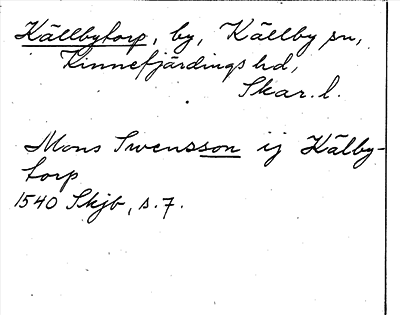 Källbytorp, by, Källby sn,
Kinnefjärdings hd,
Skar. l.
Mons Swensson ij Kälby-
torp
1540 Skjb, s. 7.